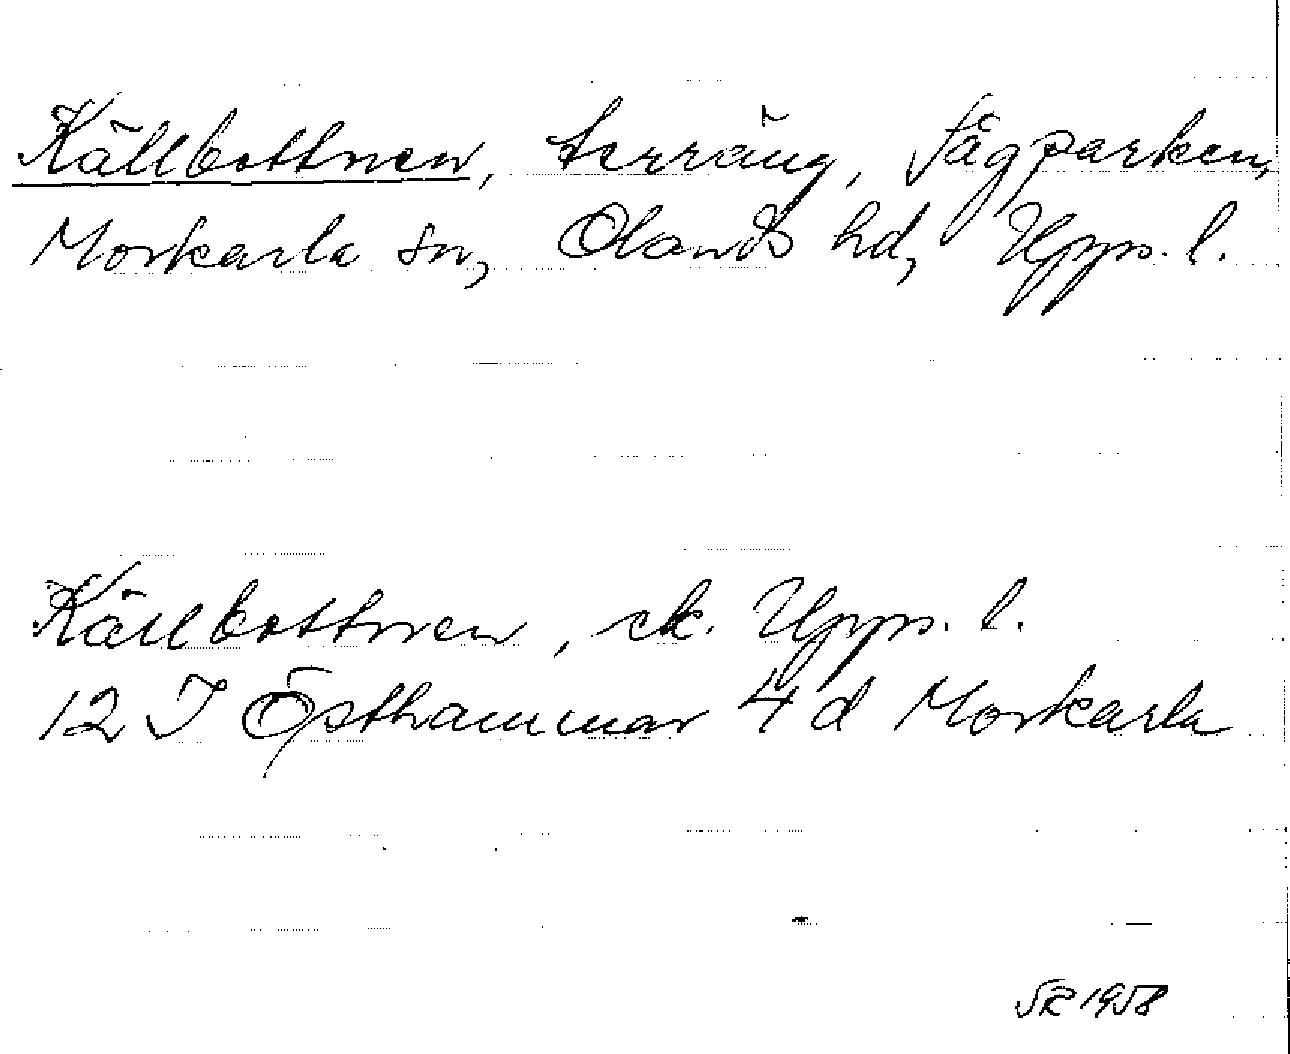 Källbottnen, terräng, Fågparken,
Morkarla sn, Olands hd, Upps. l.
Källbottnen, ek. Upps. l.
12 I Östhammar 4 d Morkarla
SR 1958